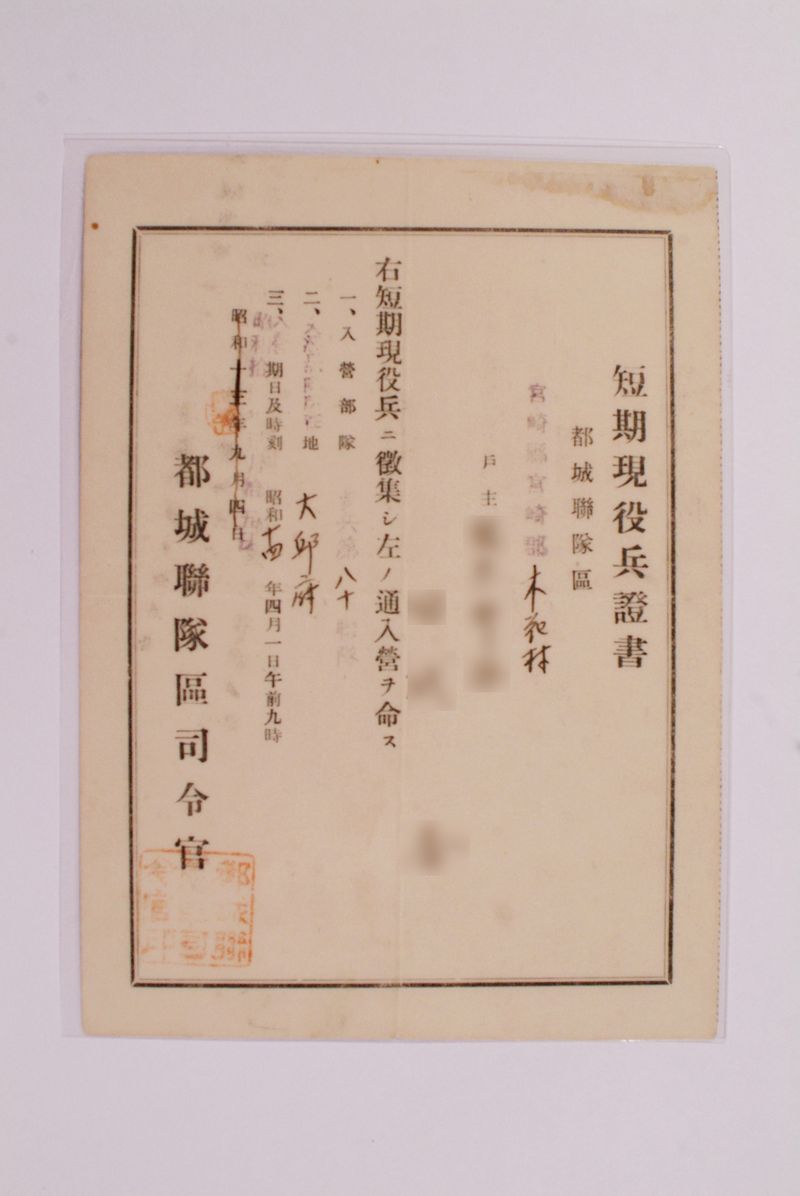 短期現役兵證書
都城聯隊區
宮崎縣宮崎郡木花村
戶主
右短期現役兵ニ徵集シ左ノ通入營ヲ命ス
一、入營部隊 八十
二、地 大邱府
三、期日及時刻 昭和十四年四月一日午前九時
昭和十三年九月四日
都城聯隊區司令官